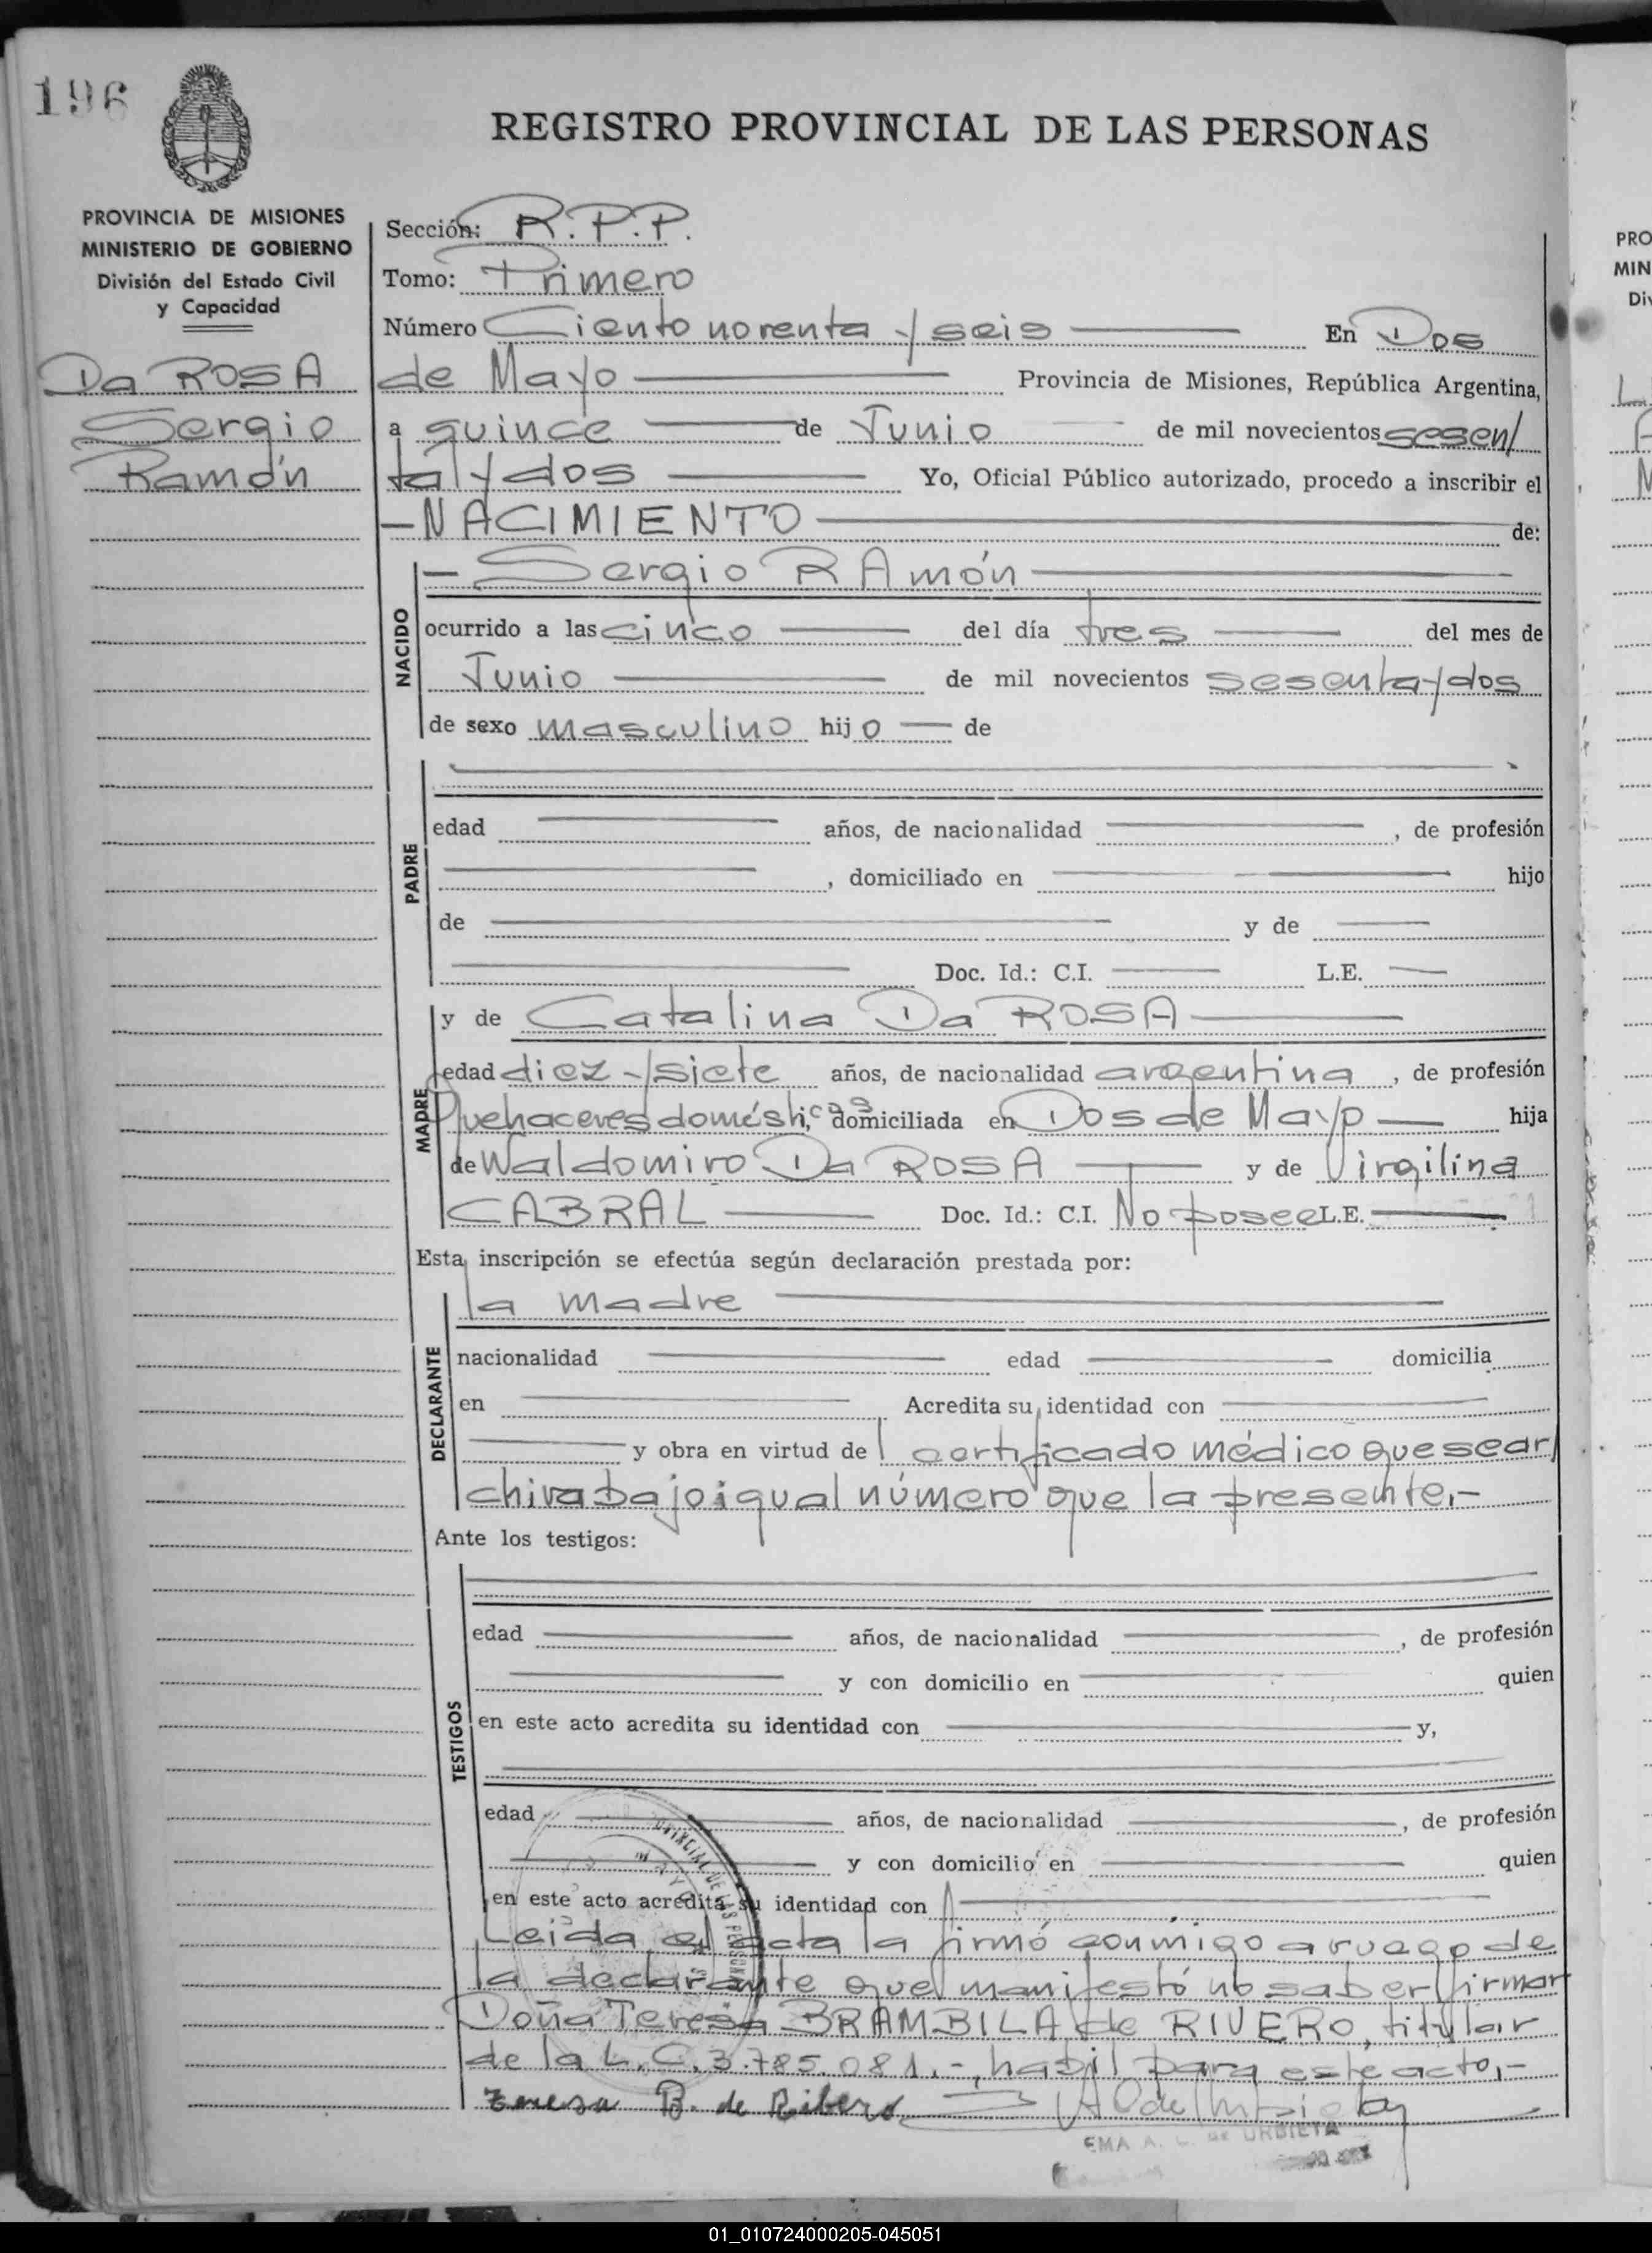 196
REGISTRO PROVINCIAL DE LAS PERSONAS
PROVINCIA DE MISIONES
MINISTERIO DE GOBIERNO
División del Estado Civil
y Capacidad
Da ROSA
Sergio
Ramón
Sección: R.P.P.
Tomo: Primero
Número Ciento noventa y seis En Dos
de Mayo Provincia de Misiones, República Argentina,
a quince de Junio de mil novecientos sesen/
ta y dos Yo, Oficial Público autorizado, procedo a inscribir el
-NACIMIENTO de:
NACIDO
- Sergio RAmón
ocurrido a las cinco del día tres del mes de
Junio de mil novecientos sesenta y dos
de sexo masculino hijo de
PADRE
edad años, de nacionalidad , de profesión
, domiciliado en hijo
de y de
Doc. Id.: C.I. L.E.
MADRE
y de Catalina Da ROSA
edad diez y siete años, de nacionalidad argentina , de profesión
Quehaceres domésticos, domiciliada en Dos de Mayo hija
de Waldomiro Da ROSA y de Virgilina
CABRAL Doc. Id.: C.I. No posee L.E.
Esta inscripción se efectúa según declaración prestada por:
DECLARANTE
la madre
nacionalidad edad domicilia
en Acredita su identidad con
y obra en virtud de certificado médico que se ar/
chiva bajo igual número que la presente.-
Ante los testigos:
TESTIGOS
edad años, de nacionalidad , de profesión
y con domicilio en quien
en este acto acredita su identidad con y,
edad años, de nacionalidad , de profesión
y con domicilio en quien
en este acto acredita su identidad con
Leida el acta la firmó conmigo a ruego de
la declarante que manifestó no saber firmar
Doña Teresa BRAMBILA de RIVERO, titular
de la L.C. 3.785.081.-, habil para este acto.-
Teresa B. de Ribero
EMA A. L. de URBIETA
01_010724000205-045051